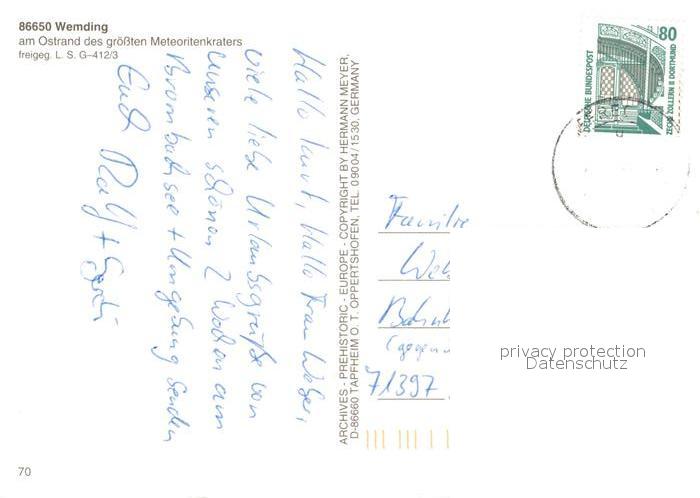 86650 Wemding
am Ostrand des größten Meteoritenkraters
freigeg. L. S. G–412/3
Hallo Hallo Frau Weber,
viele liebe Urlaubsgrüße von
unseren schönen 2 Wochen am
Brombachsee + Umgebung senden
Euch Ralf +
ARCHIVES - PREHISTORIC - EUROPE - COPYRIGHT BY HERMANN MEYER,
D-86660 TAPFHEIM O. T. OPPERTSHOFEN, TEL. 09004/1530, GERMANY
80
DEUTSCHE BUNDESPOST
ZECHE ZOLLERN II DORTMUND
Familie
71397
privacy protection
Datenschutz
70